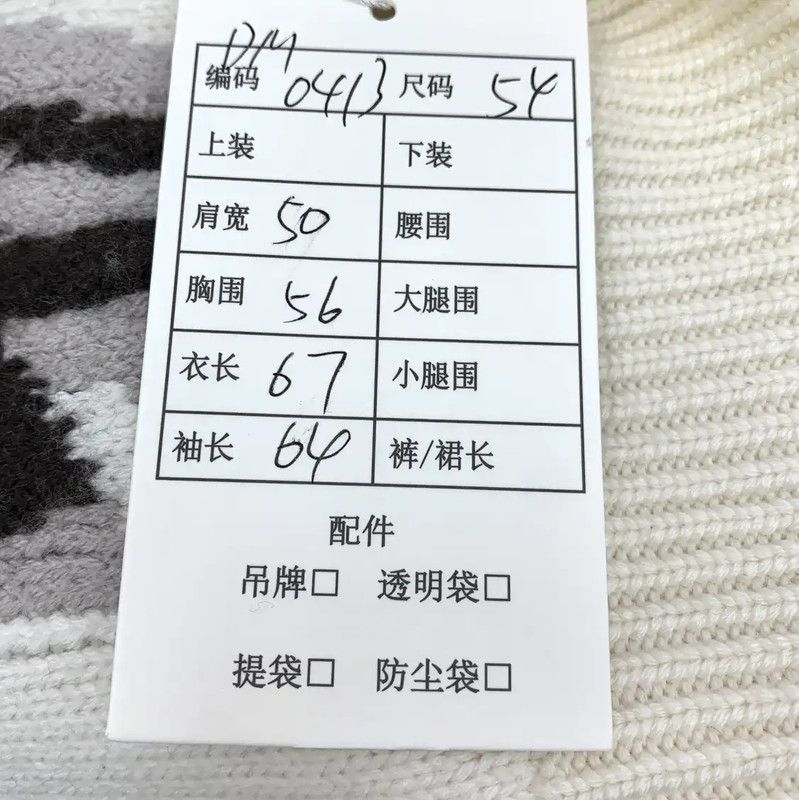 DM
编码 0413 尺码 54
上装 下装
肩宽 50 腰围
胸围 56 大腿围
衣长 67 小腿围
袖长 64 裤/裙长
配件
吊牌□ 透明袋□
提袋□ 防尘袋□